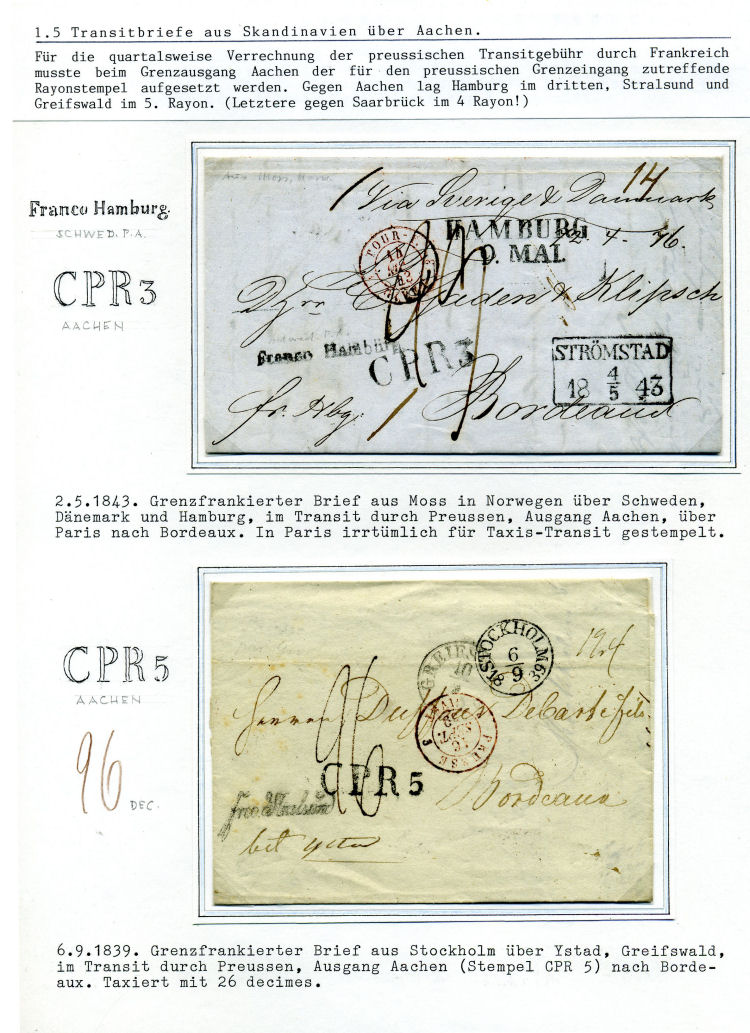 1.5 Transitbriefe aus Skandinavien über Aachen.
Für die quartalsweise Verrechnung der preussischen Transitgebühr durch Frankreich
musste beim Grenzausgang Aachen der für den preussischen Grenzeingang zutreffende
Rayonstempel aufgesetzt werden. Gegen Aachen lag Hamburg im dritten, Stralsund und
Greifswald im 5. Rayon. (Letztere gegen Saarbrück im 4 Rayon!)
Franco Hamburg.
SCHWED. P.A.
CPR3
AACHEN
14
Via Sverige & Danmark
HAMBURG
9. MAI.
2. 4. 76.
TOUR-T.
14
Klipsch
Franco Hamburg
CPR3
STRÖMSTAD
18 4/5 43
fr. Hbg.
Bordeaux
2.5.1843. Grenzfrankierter Brief aus Moss in Norwegen über Schweden,
Dänemark und Hamburg, im Transit durch Preussen, Ausgang Aachen, über
Paris nach Bordeaux. In Paris irrtümlich für Taxis-Transit gestempelt.
CPR5
AACHEN
96
DEC.
STOCKHOLM
6/9
1839
GREIFS
10
PRUSSE 3
CPR5
Bordeaux
6.9.1839. Grenzfrankierter Brief aus Stockholm über Ystad, Greifswald,
im Transit durch Preussen, Ausgang Aachen (Stempel CPR 5) nach Borde-
aux. Taxiert mit 26 decimes.